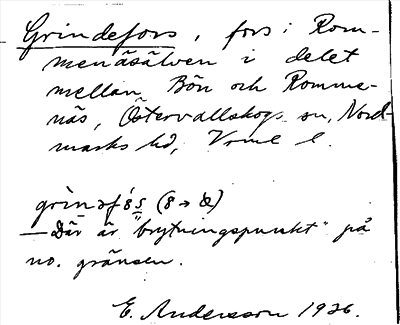 Grindefors, fors i Rom-
menäsälven i delet
mellan Bön och Romme-
näs, Östervallskogs sn, Nord-
marks hd, Vrml l.
grìnəf
— Där är "brytningspunkt" på
no. gränsen.
E. Andersson 1926.